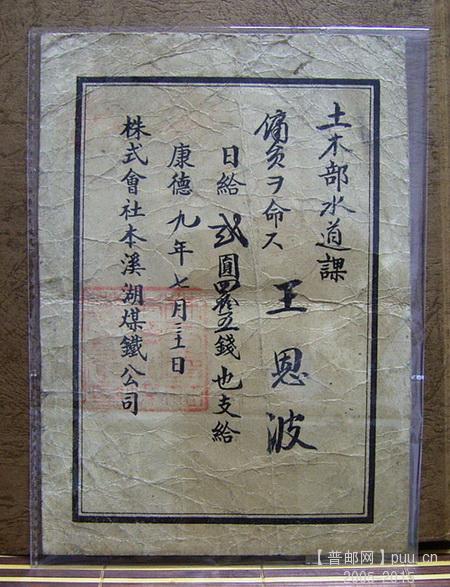 土木部水道課
王恩波
傭員ヲ命ス
日給貳圓四拾五錢也支給
康德九年七月三十一日
株式會社本溪湖煤鐵公司
【普邮网】puu.cn
2005-2015